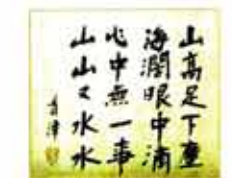 山高足下塵
海濶眼中滴
心中無一事
山山又水水